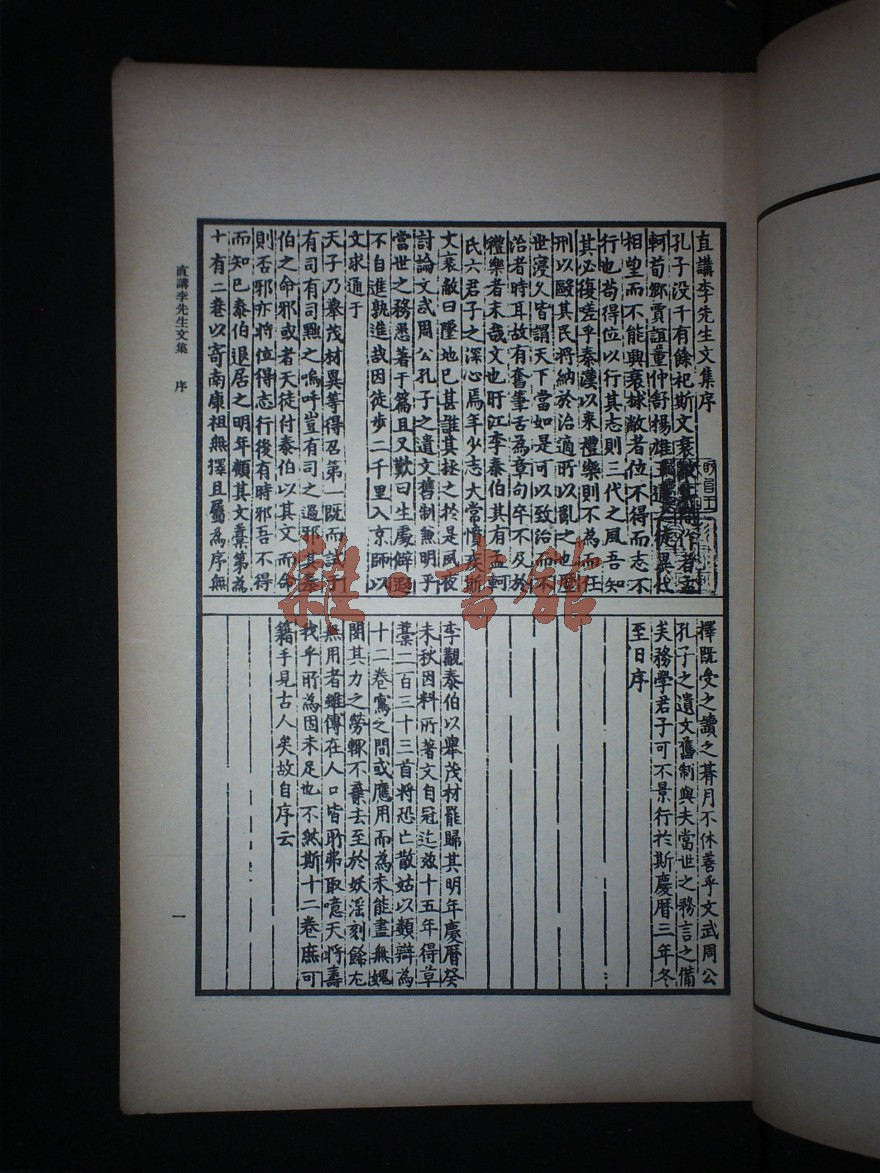 直講李先生文集序
孔子没千有餘祀斯文衰作者孟
軻荀卿賈誼董仲舒揚雄王通之徒異代
相望而不能興衰捄敝者位不得而志不
行也苟得位以行其志則三代之風吾知
其必復嗟乎秦漢以來禮樂則不為而任
刑以毆其民將納於治適所以亂之也歷
世寖久皆謂天下當如是可以致治而不
治者時耳故有奮筆舌為章句卒不及於
禮樂者末哉文也盱江李泰伯其有孟軻
氏六君子之深心焉年少志大常憤疾斯
文衰敝曰墜地已甚誰其拯之於是夙夜
討論文武周公孔子之遺文舊制兼明乎
當世之務悉著于篇且又歎曰生處僻遐
不自進孰進哉因徒步二千里入京師以
文求通于
天子乃舉茂材異等得召第一既而試于
有司有司黜之嗚呼豈有司之過邪其泰
伯之命邪或者天徒付泰伯以其文而命
則否邪亦將位得志行後有時邪吾不得
而知已泰伯退居之明年類其文藁第為
十有二卷以寄南康祖無擇且屬為序無
擇既受之讀之朞月不休善乎文武周公
孔子之遺文舊制與夫當世之務言之備
矣務學君子可不景行於斯慶曆三年冬
至日序
李觀泰伯以舉茂材罷歸其明年慶曆癸
未秋因料所著文自冠迄茲十五年得草
藁二百三十三首將恐亡散姑以類辯為
十二卷寫之間或應用而為未能盡無媿
閔其力之勞輒不棄去至於妖淫刻餙尤
無用者雖傳在人口皆所弗取噫天將壽
我乎所為因未足也不然斯十二卷庶可
藉手見古人矣故自序云
直講李先生文集 序
一
雜·書館